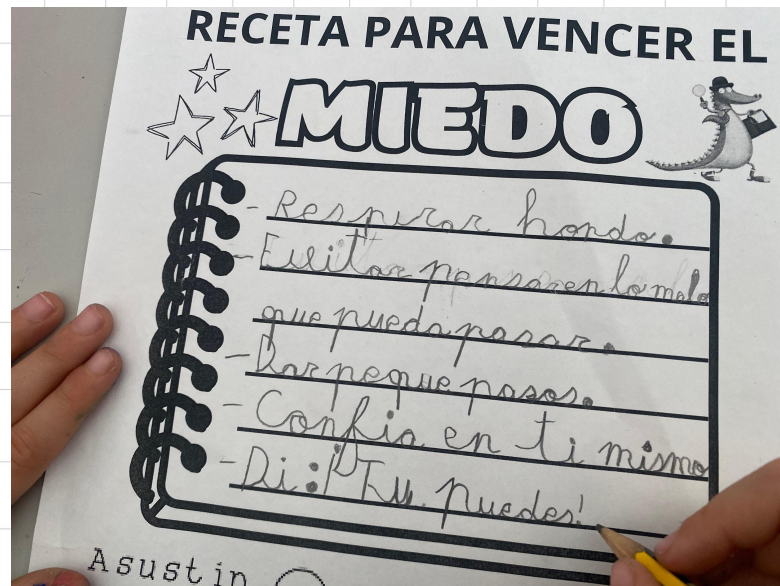 RECETA PARA VENCER EL
MIEDO
- Respirar hondo.
- Evitar pensar en lo malo
que pueda pasar.
- Dar peque pasos.
- Confia en ti mismo
- Di: ¡Tu puedes!
Asustin